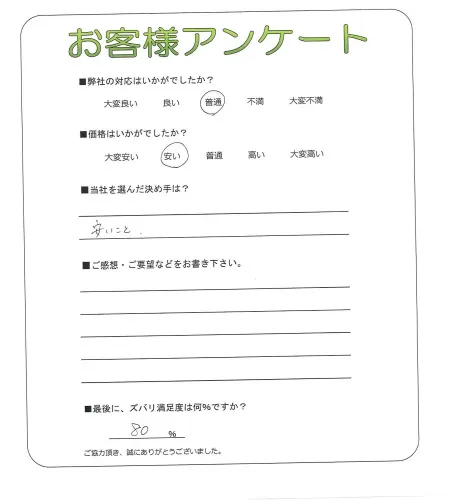 お客様アンケート
■弊社の対応はいかがでしたか？
大変良い 良い 普通 不満 大変不満
■価格はいかがでしたか？
大変安い 安い 普通 高い 大変高い
■当社を選んだ決め手は？
安いこと.
■ご感想・ご要望などをお書き下さい。
■最後に、ズバリ満足度は何%ですか？
80 %
ご協力頂き、誠にありがとうございました。